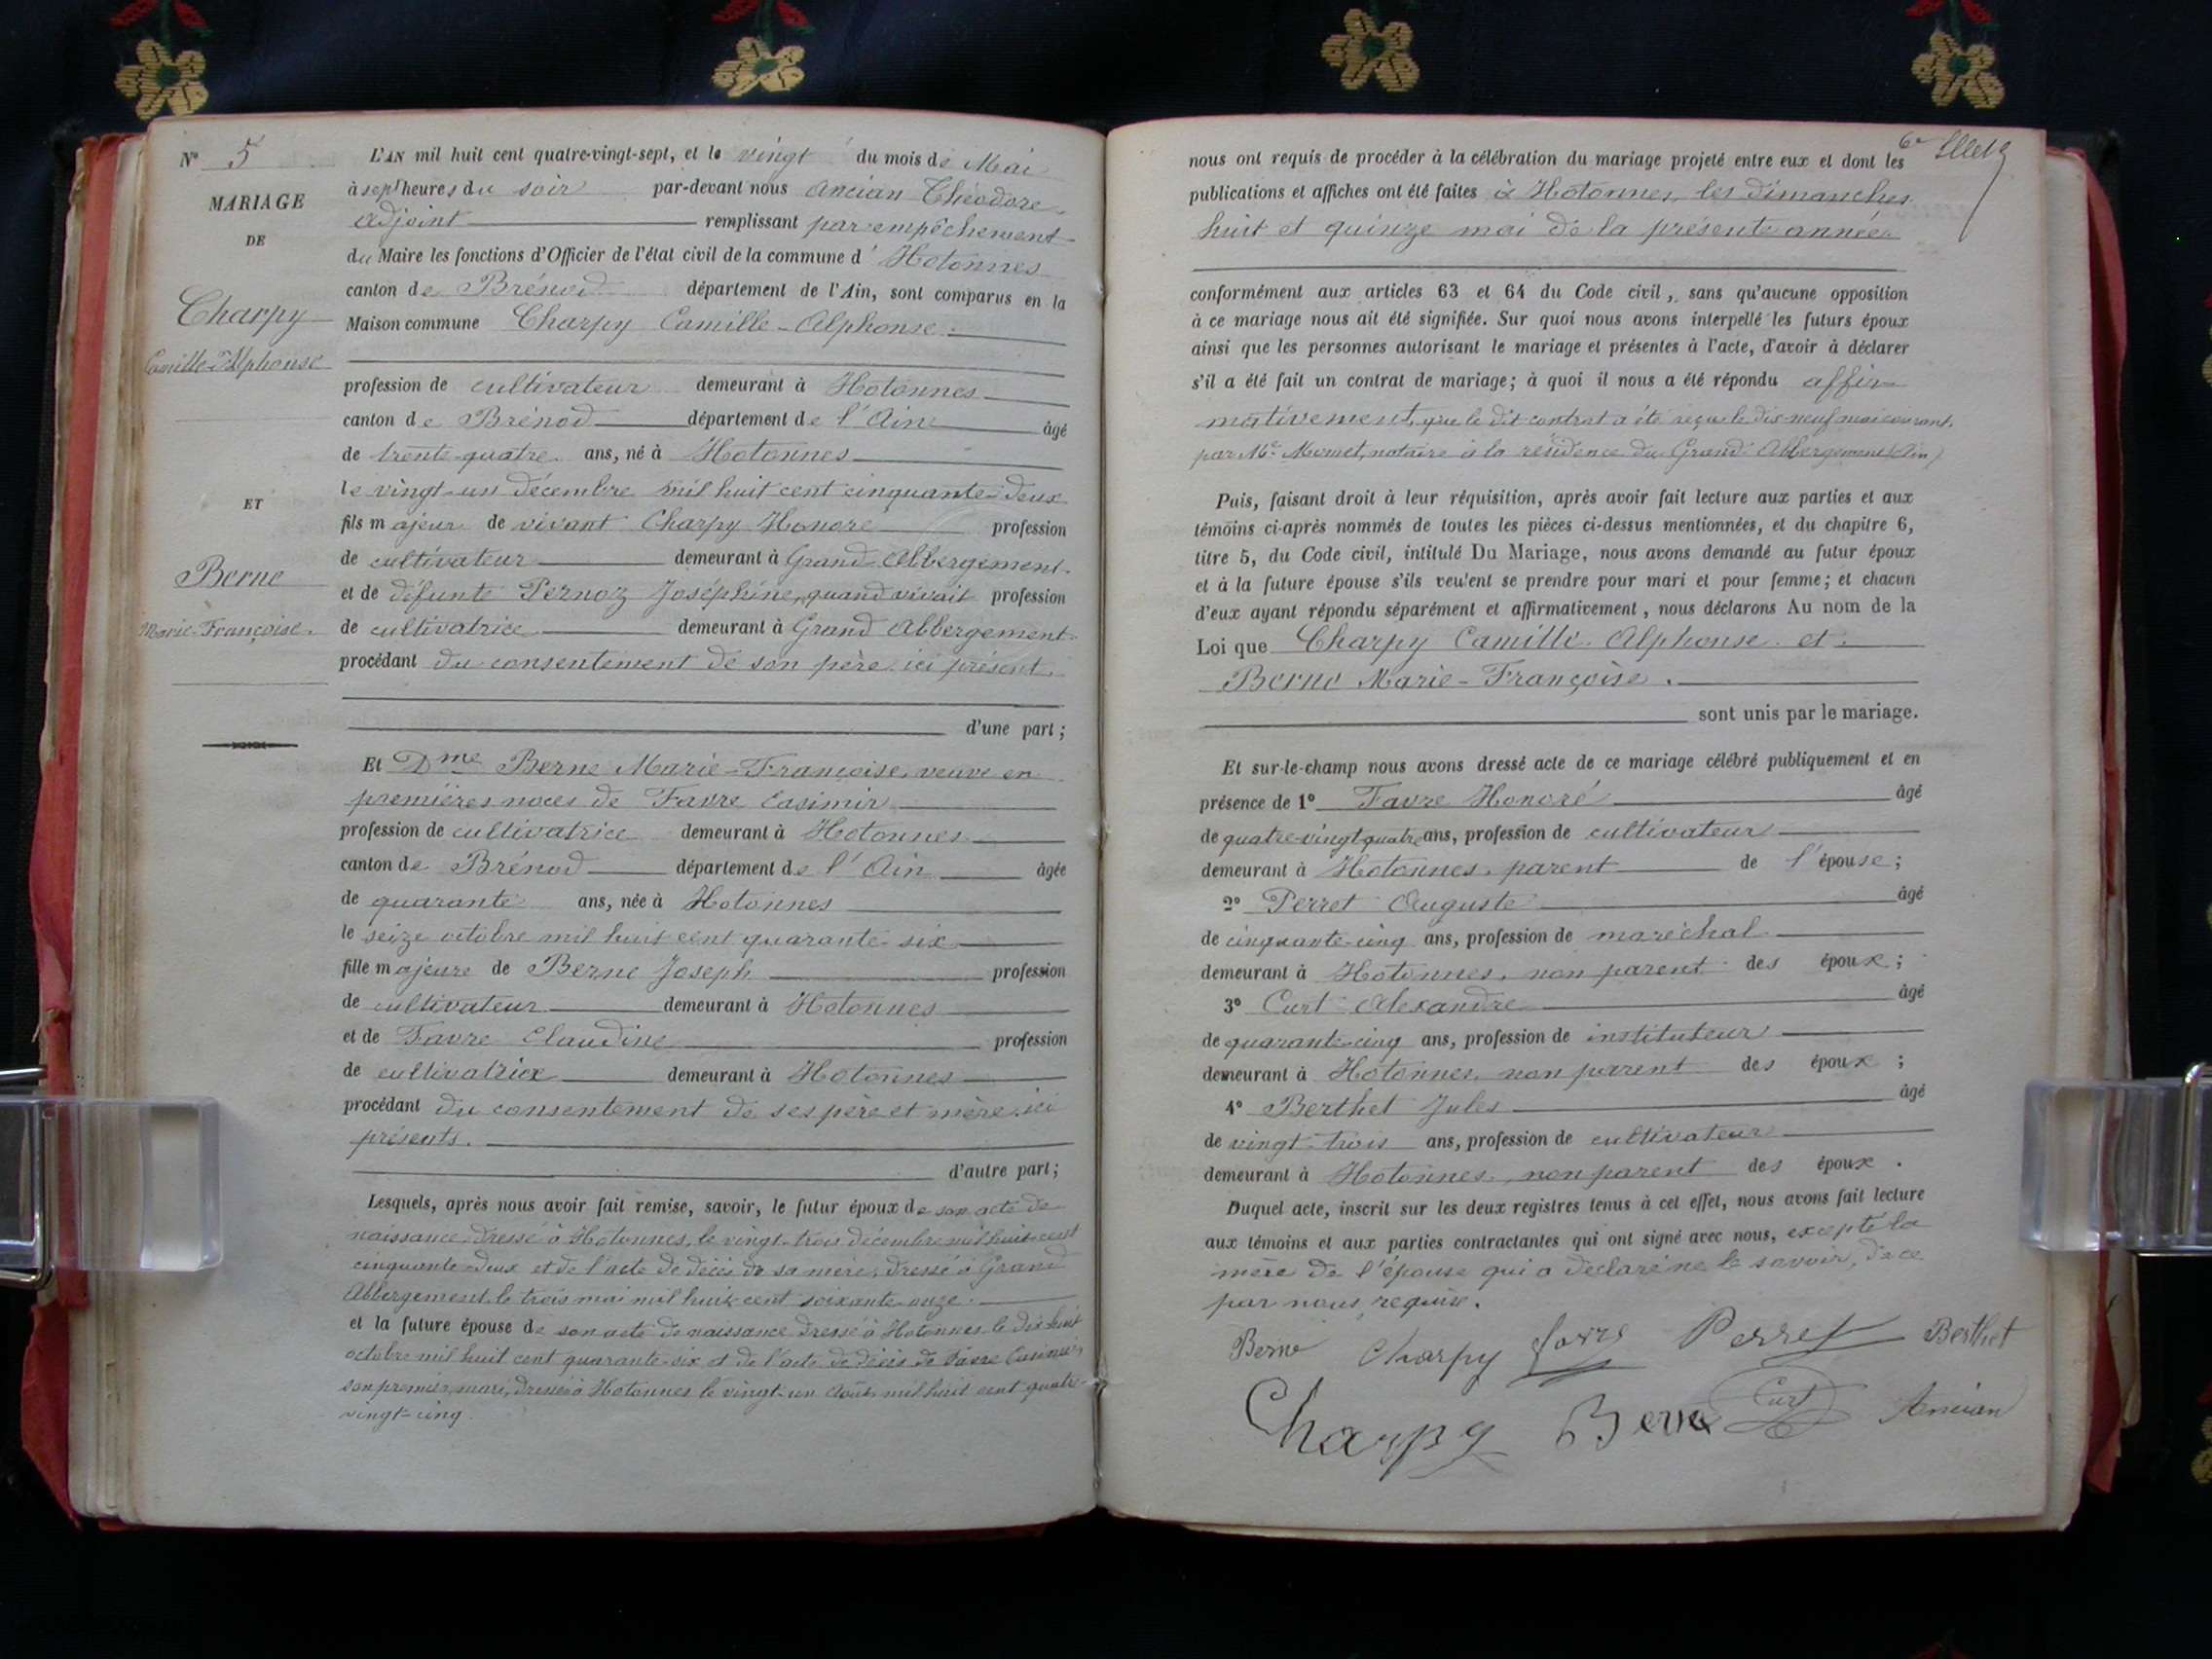 N° 5
MARIAGE
DE
Charpy
Camille-Alphonse
ET
Berne
Marie-Françoise.
L'AN mil huit cent quatre-vingt-sept, et le vingt du mois de Mai
à sept heures du soir par-devant nous Ancian Théodore,
adjoint remplissant par empêchement
du Maire les fonctions d'Officier de l'état civil de la commune d'Hotonnes
canton de Brénod département de l'Ain, sont comparus en la
Maison commune Charpy Camille-Alphonse.
profession de cultivateur demeurant à Hotonnes
canton de Brénod département de l'Ain âgé
de trente-quatre ans, né à Hotonnes
le vingt-un décembre mil huit cent cinquante-deux
fils majeur de vivant Charpy Honoré profession
de cultivateur demeurant à Grand Abbergement.
et de défunte Pernoz Joséphine, quand vivait profession
de cultivatrice demeurant à Grand Abbergement.
procédant du consentement de son père ici présent.
d'une part;
Et Dme Berne Marie-Françoise, veuve en
premières noces de Favre Casimir
profession de cultivatrice demeurant à Hotonnes
canton de Brénod département de l'Ain âgée
de quarante ans, née à Hotonnes
le seize octobre mil huit cent quarante-six
fille majeure de Berne Joseph profession
de cultivateur demeurant à Hotonnes
et de Favre Claudine profession
de cultivatrice demeurant à Hotonnes
procédant du consentement de ses père et mère ici
présents.
d'autre part;
Lesquels, après nous avoir fait remise, savoir, le futur époux de son acte de
naissance dressé à Hotonnes, le vingt-trois décembre mil huit cent
cinquante-deux et de l'acte de décès de sa mère, dressé à Grand
Abbergement le trois mai mil huit cent soixante-onze.
et la future épouse de son acte de naissance dressé à Hotonnes le dix-huit
octobre mil huit cent quarante-six et de l'acte de décès de Favre Casimir,
son premier mari, dressé à Hotonnes le vingt-un août mil huit cent quatre-
vingt-cinq
6e
nous ont requis de procéder à la célébration du mariage projeté entre eux et dont les
publications et affiches ont été faites à Hotonnes, les dimanches
huit et quinze mai de la présente année
conformément aux articles 63 et 64 du Code civil, sans qu'aucune opposition
à ce mariage nous ait été signifiée. Sur quoi nous avons interpellé les futurs époux
ainsi que les personnes autorisant le mariage et présentes à l'acte, d'avoir à déclarer
s'il a été fait un contrat de mariage; à quoi il nous a été répondu affir-
mativement, que le dit contrat a été reçu le dix-neuf mai courant,
par Me Momet, notaire à la résidence du Grand Abbergement (Ain)
Puis, faisant droit à leur réquisition, après avoir fait lecture aux parties et aux
témoins ci-après nommés de toutes les pièces ci-dessus mentionnées, et du chapitre 6,
titre 5, du Code civil, intitulé Du Mariage, nous avons demandé au futur époux
et à la future épouse s'ils veulent se prendre pour mari et pour femme; et chacun
d'eux ayant répondu séparément et affirmativement, nous déclarons Au nom de la
Loi que Charpy Camille Alphonse et
Berne Marie-Françoise.
sont unis par le mariage.
Et sur-le-champ nous avons dressé acte de ce mariage célébré publiquement et en
présence de 1° Favre Honoré âgé
de quatre-vingt-quatre ans, profession de cultivateur
demeurant à Hotonnes, parent de l'épouse;
2° Perret Auguste âgé
de cinquante-cinq ans, profession de maréchal
demeurant à Hotonnes, non parent des époux;
3° Curt Alexandre âgé
de quarante-cinq ans, profession de instituteur
demeurant à Hotonnes, non parent des époux;
4° Berthet Jules âgé
de vingt-trois ans, profession de cultivateur
demeurant à Hotonnes, non parent des époux.
Duquel acte, inscrit sur les deux registres tenus à cet effet, nous avons fait lecture
aux témoins et aux parties contractantes qui ont signé avec nous, excepté la
mère de l'épouse qui a déclaré ne le savoir, de ce
par nous requise.
Berne Charpy favre Perret Berthet
Charpy Berne Curt Ancian